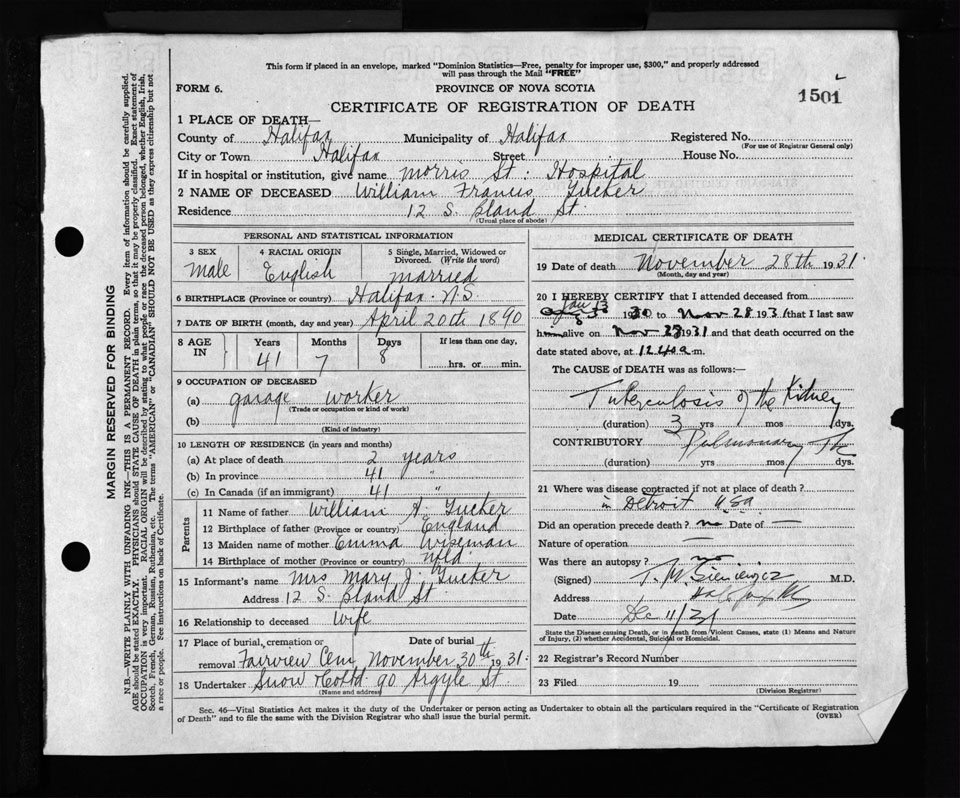 This form if placed in an envelope, marked "Dominion Statistics—Free, penalty for improper use, $300," and properly addressed
will pass through the Mail "FREE"
FORM 6. PROVINCE OF NOVA SCOTIA
1501
CERTIFICATE OF REGISTRATION OF DEATH
1 PLACE OF DEATH—
County of Halifax Municipality of Halifax Registered No.
(For use of Registrar General only)
City or Town Halifax Street House No.
If in hospital or institution, give name Morris St: Hospital
2 NAME OF DECEASED William Francis Tucker
Residence 12 S. Bland St.
(Usual place of abode)
PERSONAL AND STATISTICAL INFORMATION
3 SEX 4 RACIAL ORIGIN 5 Single, Married, Widowed or
Divorced. (Write the word)
Male English married
6 BIRTHPLACE (Province or country) Halifax. N.S.
7 DATE OF BIRTH (month, day and year) April 20th 1890
8 AGE IN Years Months Days If less than one day,
41 7 8 hrs. or min.
9 OCCUPATION OF DECEASED
(a) garage worker
(Trade or occupation or kind of work)
(b)
(Kind of industry)
10 LENGTH OF RESIDENCE (in years and months)
(a) At place of death 2 years
(b) In province 41 "
(c) In Canada (if an immigrant) 41 "
Parents
11 Name of father William A. Tucker
12 Birthplace of father (Province or country) England
13 Maiden name of mother Emma Wiseman
14 Birthplace of mother (Province or country) Nfld.
15 Informant's name Mrs Mary J. Tucker
Address 12 S. Bland St
16 Relationship to deceased Wife
17 Place of burial, cremation or Date of burial
removal Fairview Cem November 30th 1931.
18 Undertaker Snow & Co Ltd 90 Argyle St.
(Name and address)
MEDICAL CERTIFICATE OF DEATH
19 Date of death November 28th 1931.
(Month, day and year)
20 I HEREBY CERTIFY that I attended deceased from
Jan 13
1930 to Nov 28 1931 that I last saw
him alive on Nov 28 1931 and that death occurred on the
date stated above, at 12.40 a.m.
The CAUSE of DEATH was as follows:—
Tuberculosis of the Kidney
(duration) 3 yrs mos dys.
CONTRIBUTORY Pulmonary
(duration) yrs mos dys.
21 Where was disease contracted if not at place of death?
in Detroit USA
Did an operation precede death? no Date of —
Nature of operation —
Was there an autopsy? no
(Signed) T. M. Sieniewicz M.D.
Address Halifax
Date Dec 11/31
State the Disease causing Death, or in death from Violent Causes, state (1) Means and Nature
of Injury, (2) whether Accidental, Suicidal or Homicidal.
22 Registrar's Record Number
23 Filed 19
(Division Registrar)
Sec. 46—Vital Statistics Act makes it the duty of the Undertaker or person acting as Undertaker to obtain all the particulars required in the "Certificate of Registration
of Death" and to file the same with the Division Registrar who shall issue the burial permit.
(OVER)
MARGIN RESERVED FOR BINDING
N.B.—WRITE PLAINLY WITH UNFADING INK—THIS IS A PERMANENT RECORD. Every item of information should be carefully supplied.
AGE should be stated EXACTLY. PHYSICIANS should STATE CAUSE OF DEATH in plain terms, so that it may be properly classified. Exact statement of
OCCUPATION is very important. RACIAL ORIGIN will be described by stating to what people or race the deceased person belonged, whether English, Irish,
Scotch, French, German, Russian, Ruthenian, etc. The terms "AMERICAN" or "CANADIAN" SHOULD NOT BE USED as they express citizenship but not
a race or people. See instructions on back of Certificate.